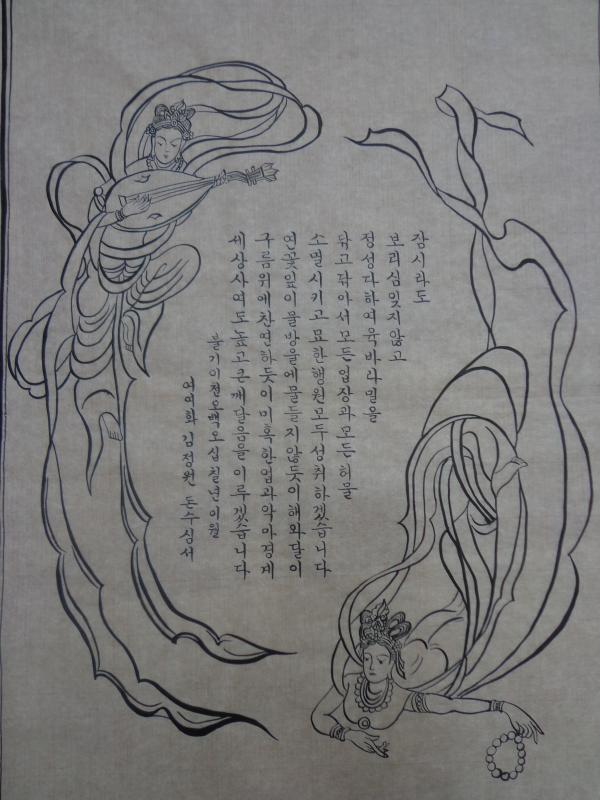 잠시라도
보리심잊지않고
정성다하여육바라밀을
닦고닦아서모든업장과모든허물
소멸시키고묘한행원모두성취하겠습니다
연꽃잎이물방울에물들지않듯이해와달이
구름위에찬연하듯이미혹한업과악마경계
세상사에도높고큰깨달음을이루겠습니다
불기이천오백오십칠년이월
여의화 김정원 돈수심서